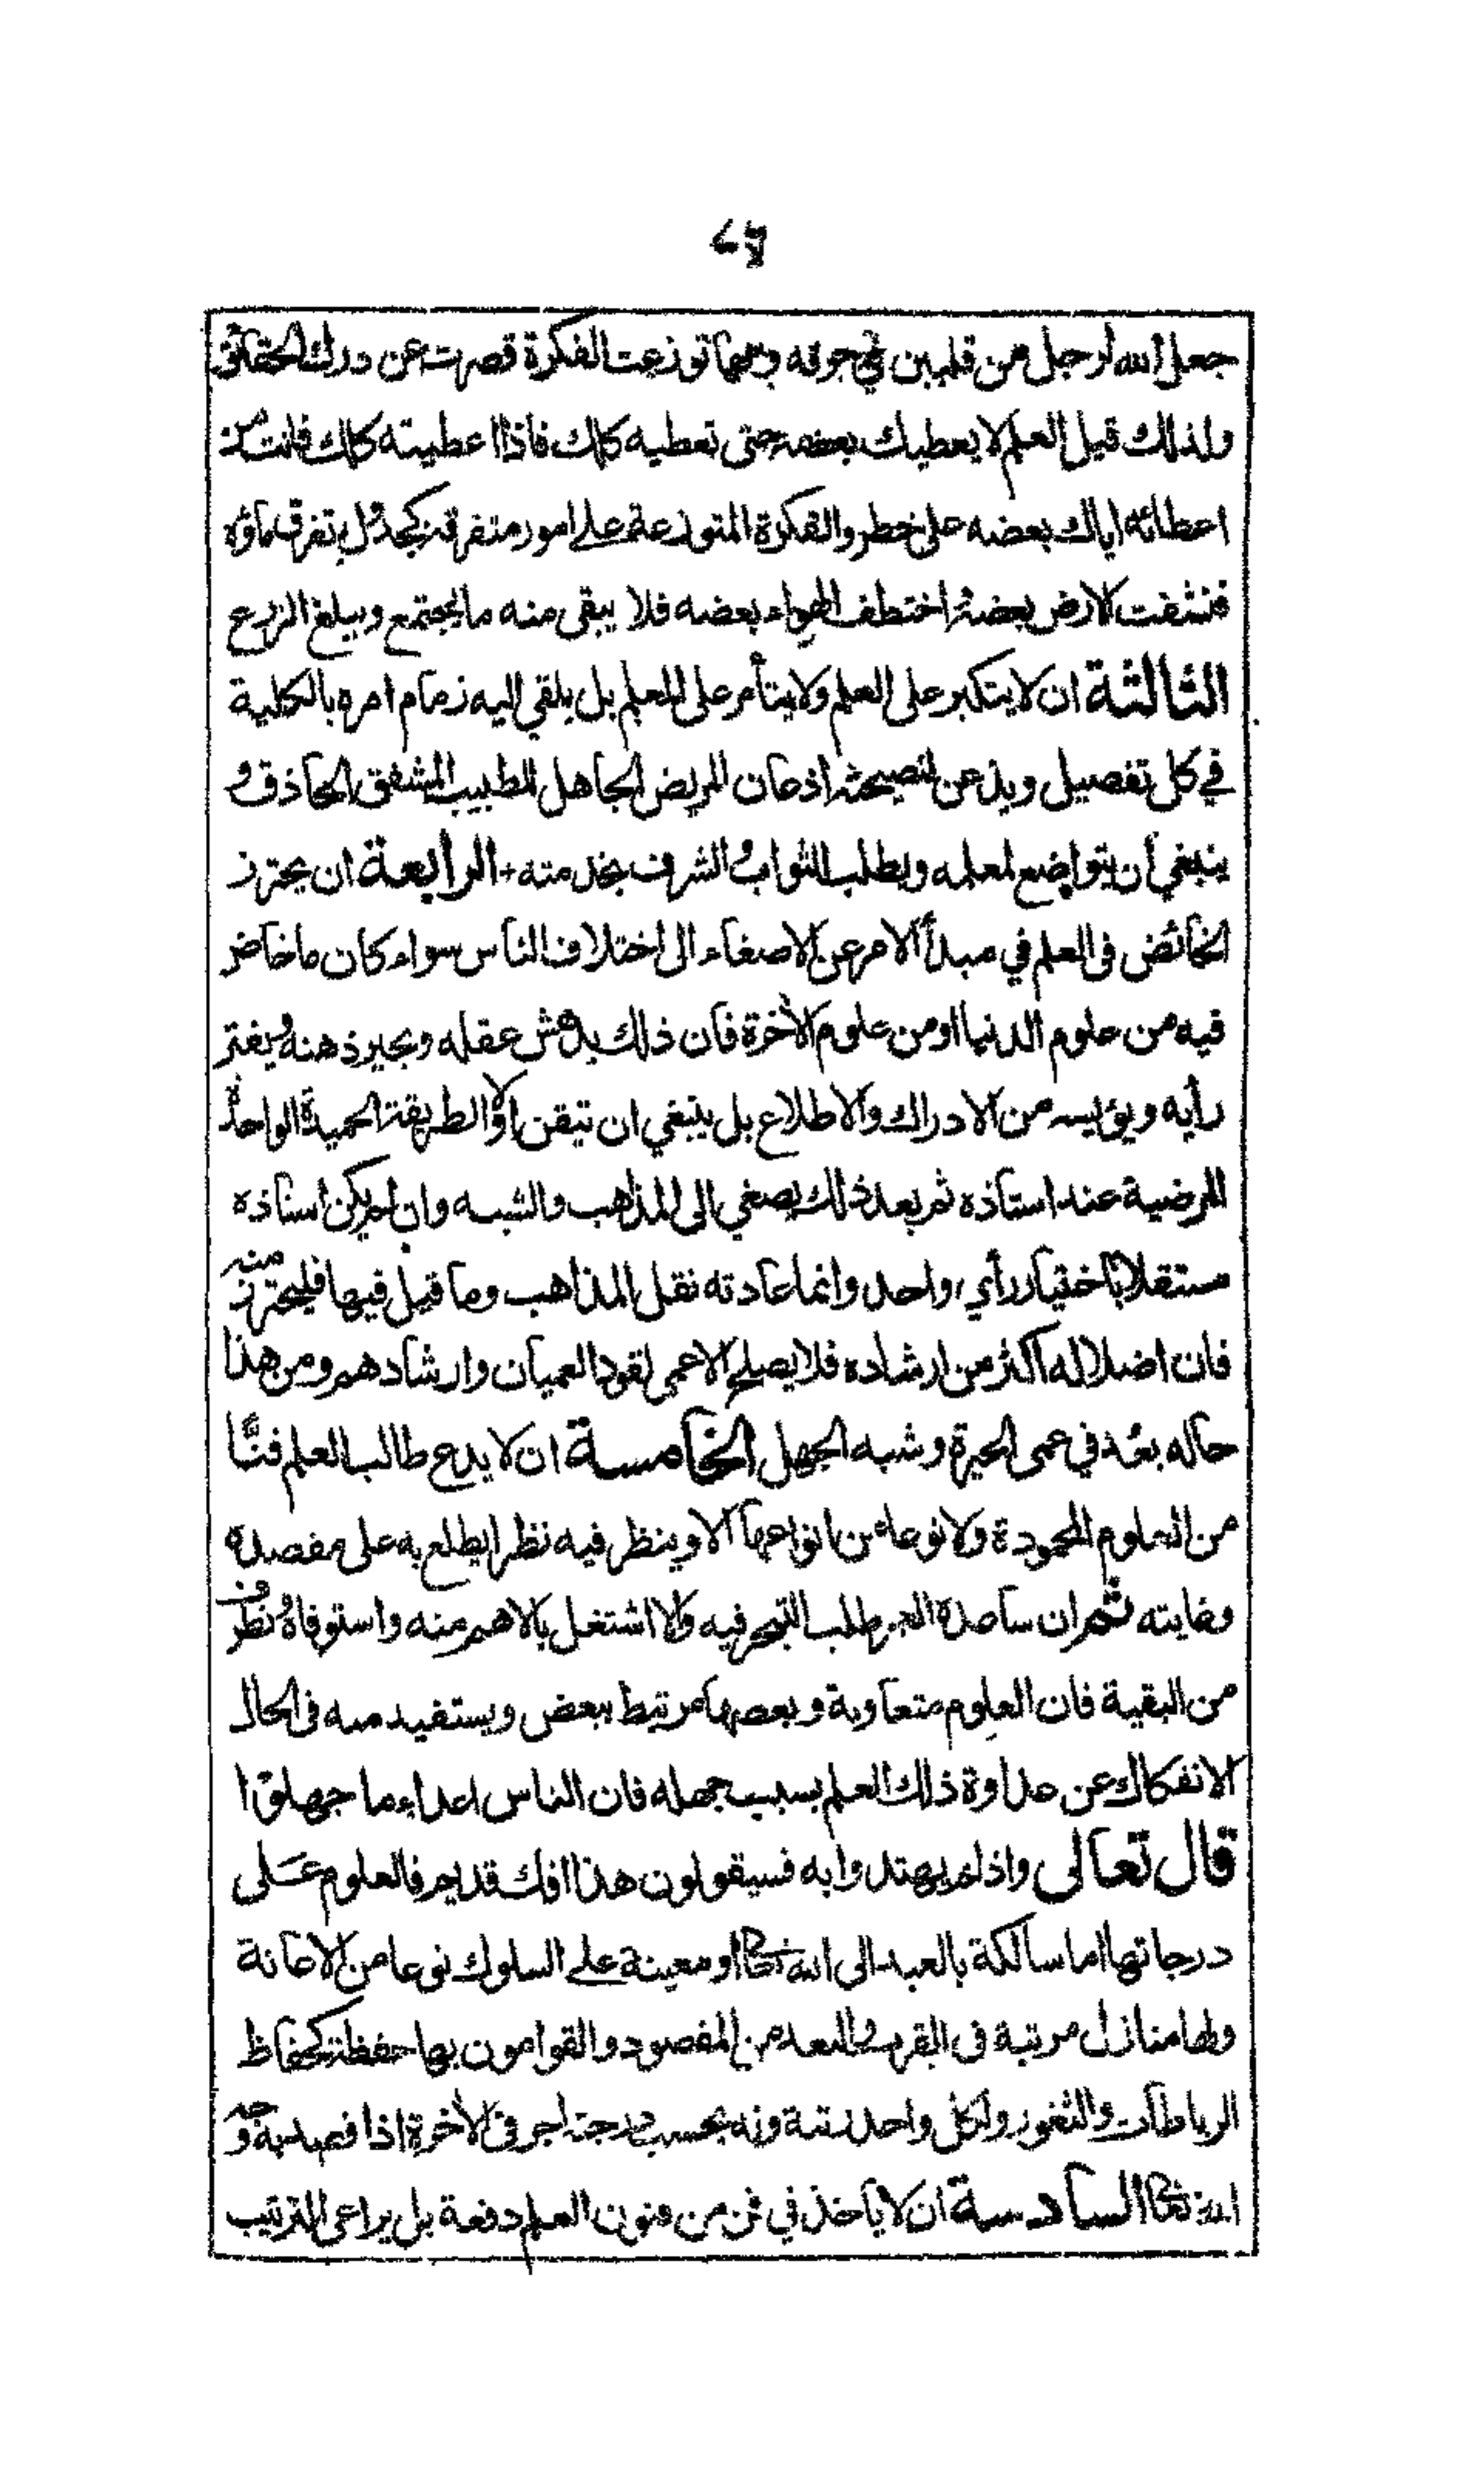 جعل الله لرجل من قلبين في جوفه ومهما توزعت الفكرة قصرت عن درك الحقائق
ولذلك قيل العلم لا يعطيك بعضه حتى تعطيه كلك فاذا اعطيته كلك فانت من
اعطائه اياك بعضه على خطر والفكرة المتوزعة على امور متفرقة كجدول تفرق ماؤه
فنشفت الارض بعضه واختطف الهواء بعضه فلا يبقى منه ما يجتمع ويبلغ المزرع
الثالثة ان لا يتكبر على العلم ولا يتأمر على المعلم بل يلقي اليه زمام امره بالكلية
في كل تفصيل ويذعن لنصيحته اذعان المريض الجاهل للطبيب المشفق الحاذق و
ينبغي أن يتواضع لمعلمه ويطلب الثواب والشرف بخدمته + الرابعة ان يحترز
الخائض فى العلم في مبدأ الامر عن الاصغاء الى اختلاف الناس سواء كان ما خاض
فيه من علوم الدنيا او من علوم الأخرة فان ذلك يدهش عقله ويحير ذهنه ويفتر
رأيه ويؤيسه من الادراك والاطلاع بل ينبغي ان تيقن اولا الطريقة الحميدة الواحدة
المرضية عند استاذه ثم بعد ذلك يصغي الى المذاهب والشبه وان لم يكن استاذه
مستقلا باختيار رأي واحد وانما عادته نقل المذاهب وما قيل فيها فليحترز منه
فان اضلاله اكثر من ارشاده فلا يصلح الاعمى لقود العميان وارشادهم ومن هذا
حاله بعد في عمى الحيرة وشبه الجهل الخامسة ان لا يدع طالب العلم فنًّا
من العلوم المحمودة ولا نوعا من انواعها الا وينظر فيه نظرا يطلع به على مقصده
وغايته ثم ان ساعده العمر طلب التبحر فيه والا اشتغل بالاهم منه واستوفاه ونظر
من البقية فان العلوم متعاونة وبعضها مرتبط ببعض ويستفيد منه فى الحال
الانفكاك عن عداوة ذلك العلم بسبب جهله فان الناس اعداء ما جهلوا
قال تعالى واذ لم يهتدوا به فسيقولون هذا افك قديم فالعلوم على
درجاتها اما سالكة بالعبد الى الله تعالى او معينة على السلوك نوعا من الاعانة
ولها منازل مرتبة فى القرب والبعد من المقصود والقوامون بها حفظة كحفاظ
الرباطات والثغور ولكل واحد رتبة وله بحسب درجته اجر فى الأخرة اذا قصد به وجه
الله تعالى السادسة ان لا يأخذ في فن من فنون العلم دفعة بل يراعى الترتيب